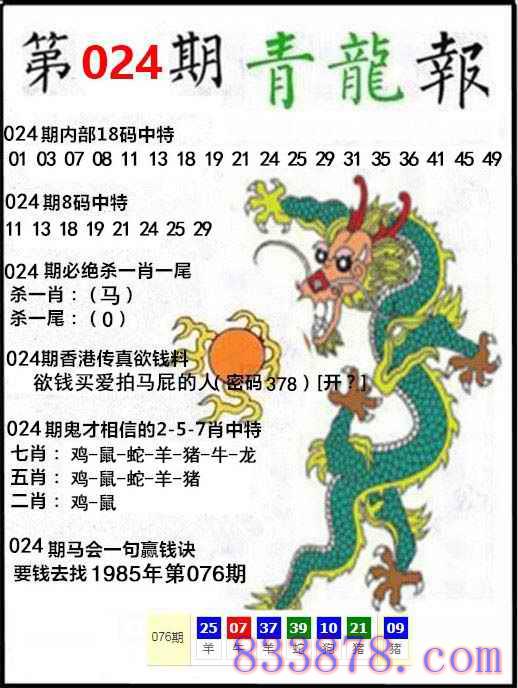 第024期青龍報
024期内部18码中特
01 03 07 08 11 13 18 19 21 24 25 29 31 35 36 41 45 49
024期8码中特
11 13 18 19 21 24 25 29
024期必绝杀一肖一尾
杀一肖：（马）
杀一尾：（0）
024期香港传真欲钱料
欲钱买爱拍马屁的人（密码378）[开？]
024期鬼才相信的2-5-7肖中特
七肖：鸡-鼠-蛇-羊-猪-牛-龙
五肖：鸡-鼠-蛇-羊-猪
二肖：鸡-鼠
024期马会一句赢钱诀
要钱去找1985年第076期
076期 25 07 37 39 10 21 09
羊 牛 羊 蛇 狗 猪 猪
833878.com